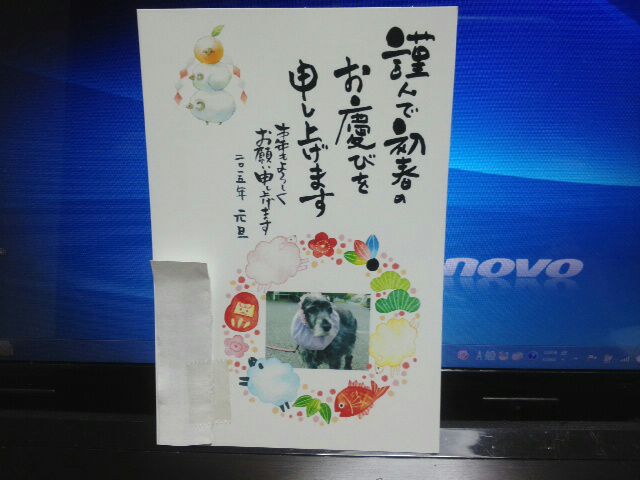 謹んで初春の
お慶びを
申し上げます
本年もよろしく
お願い申し上げます
二〇一五年 元旦
novo